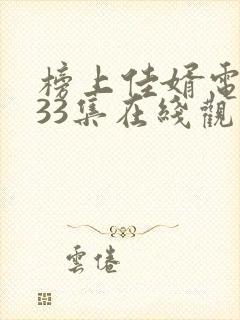 榜上佳婿電
33集在綫觀
雲倦